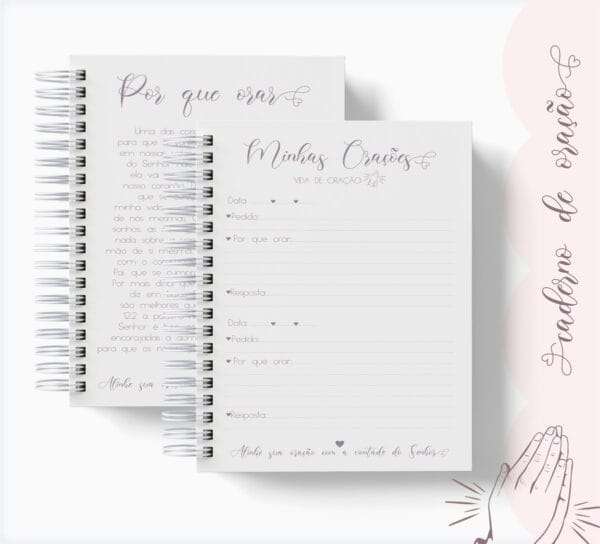 Por que orar
Uma das
para que
em nossas
do Senhor
ela vai
nosso coração
que
minha vida
de nós mesmas
sonhos, as
nada sobre
mão de si mesma
com o
Pai que se
Por mais
diz em
são melhores
12:2 a
Senhor é
encorajadas a
para que os
Alinhe sua
Minhas Orações
VIDA DE ORAÇÃO
Data:
Pedido:
Por que orar:
Resposta:
Data:
Pedido:
Por que orar:
Resposta:
Alinhe sua oração com a vontade do Senhor
caderno de oração